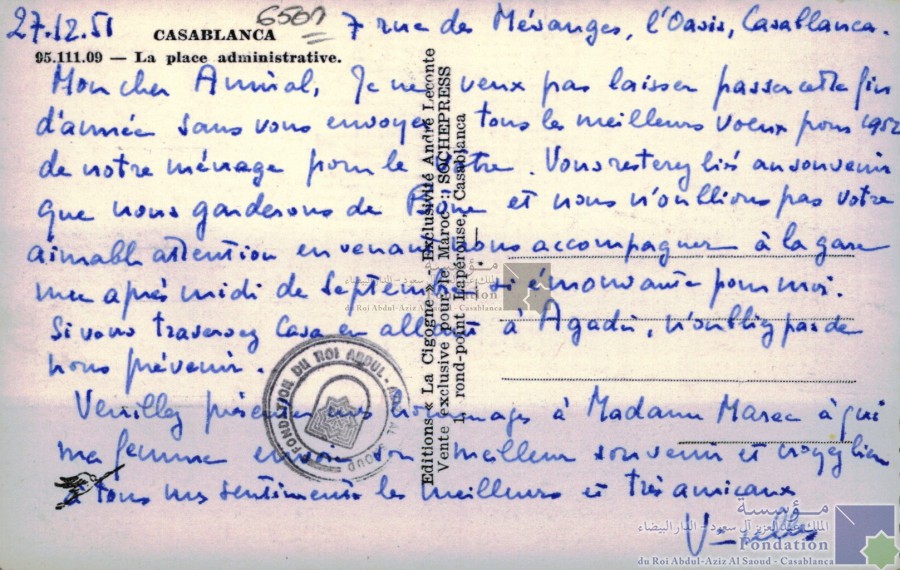 27.12.51
6501
7 rue des Mésanges, l'Oasis, Casablanca.
CASABLANCA
95.111.09 — La place administrative.
Mon cher Amiral, Je ne veux pas laisser passer cette fin
d'année sans vous envoyer tous les meilleurs voeux pour 1952
de notre ménage pour le vôtre. Vous resterez lié au souvenir
que nous garderons de et nous n'oublions pas votre
aimable attention en venant nous accompagner à la gare
une après midi de Septembre si émouvante pour moi.
Si vous traversez Casa en allant à Agadir, n'oubliez pas de
nous prévenir.
Veuillez présenter mes hommages à Madame Marec à qui
ma femme envoie son meilleur souvenir et croyez bien
à tous mes sentiments les meilleurs et très amicaux
Editions « La Cigogne » - Exclusivité André Leconte
Vente exclusive pour le Maroc : SOCHEPRESS
1, rond-point Lapérouse, Casablanca
FONDATION DU ROI ABDUL-AZIZ AL SAOUD
مؤسسة
الملك عبد العزيز آل سعود - الدار البيضاء
Fondation
du Roi Abdul-Aziz Al Saoud - Casablanca
مؤسسة
الملك عبد العزيز آل سعود - الدار البيضاء
Fondation
du Roi Abdul-Aziz Al Saoud - Casablanca